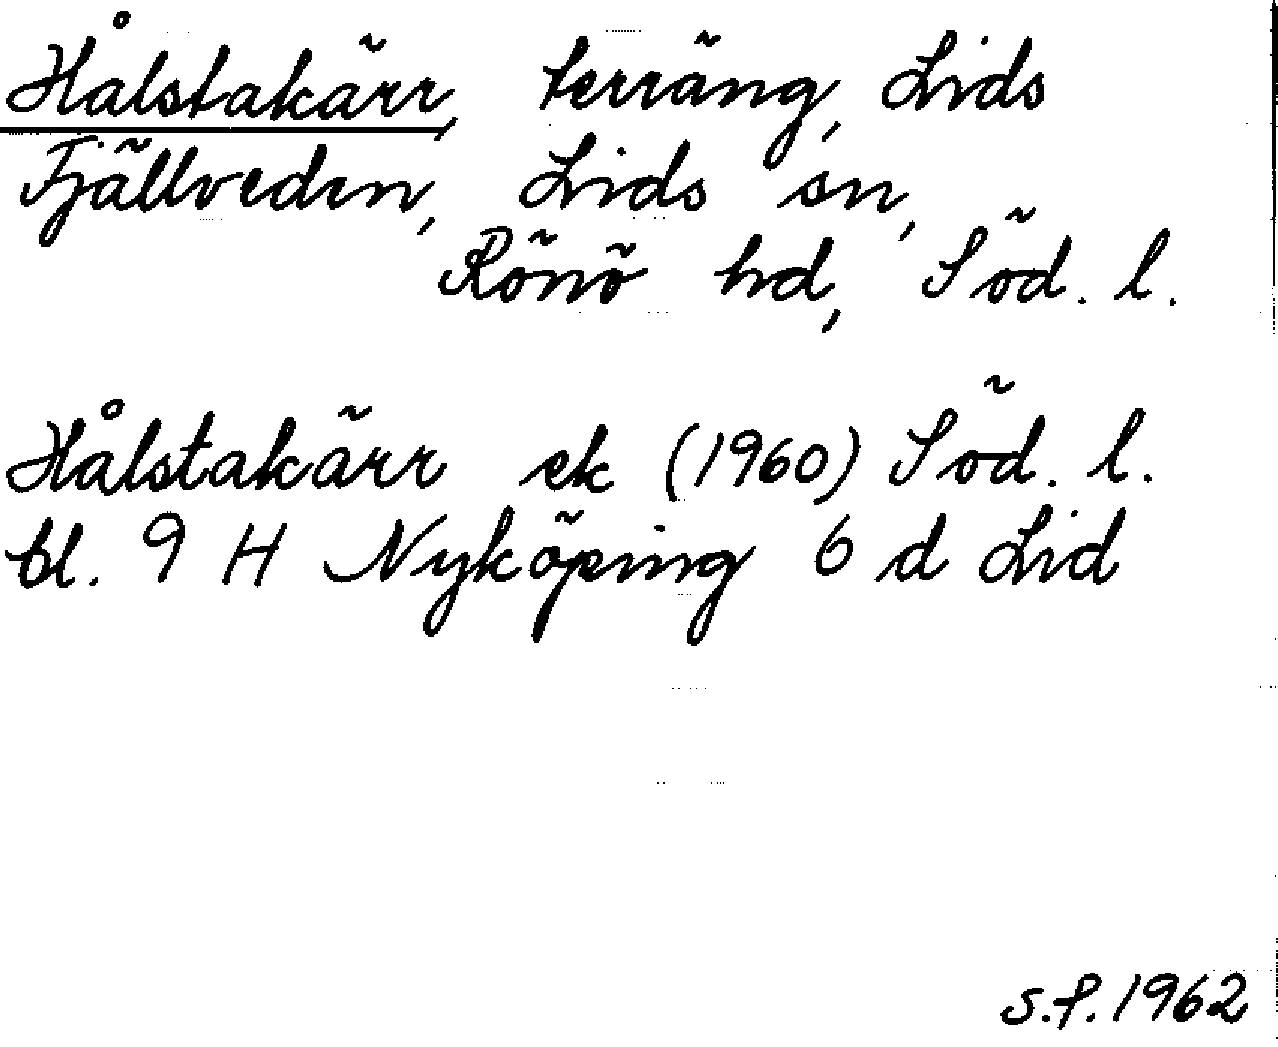 Hålstakärr, terräng, Lids
Fjällveden, Lids sn,
Rönö hd, Söd. l.
Hålstakärr ek (1960) Söd. l.
bl. 9 H Nyköping 6 d Lid
S.P. 1962